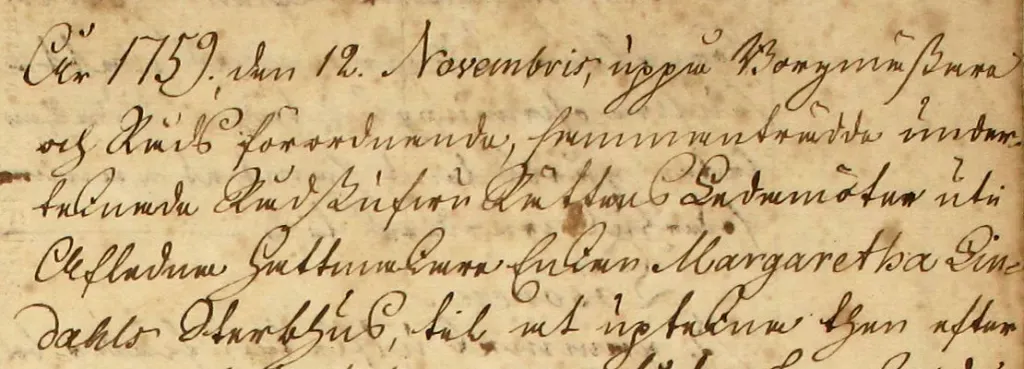 Åhr 1759. den 12. Novembris, uppå Borgmästare
och Råds förordnande, sammanträdde under-
teknade Rådstufvu Rättens Ledamöter uti
Afledna Hattmakare Enkan Margaretha Lin-
dahls Sterbhus, til at upteckna then efter